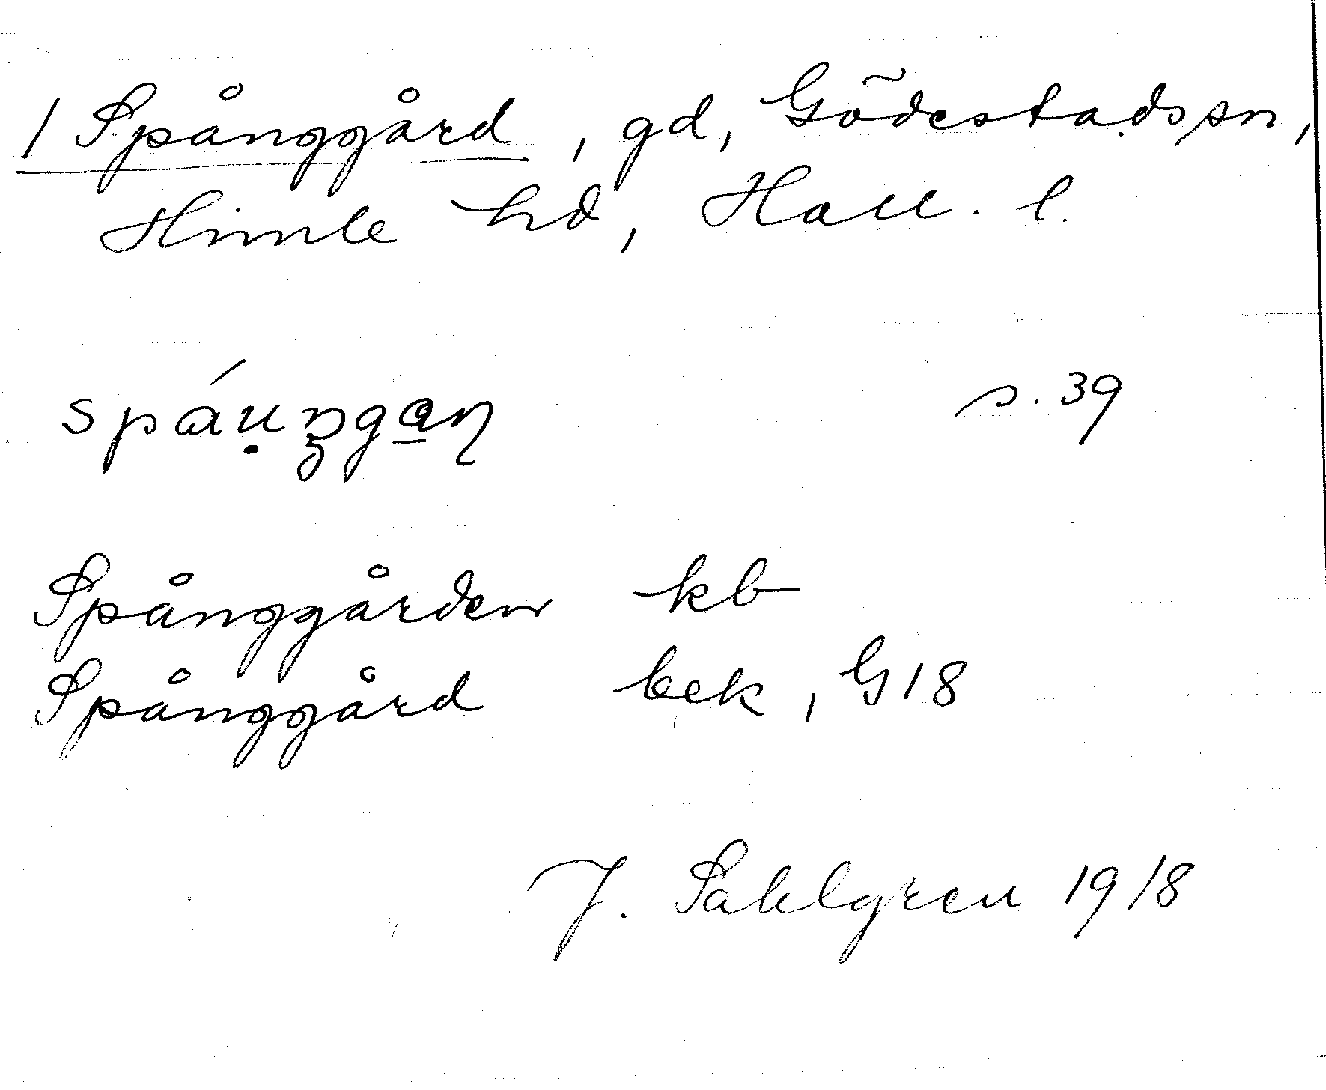 1 Spånggård, gd, Gödestads sn,
Himle hd, Hall. l.
spáụŋga̲ɳ s. 39
Spånggården kb
Spånggård bek, G18
J. Sahlgren 1918